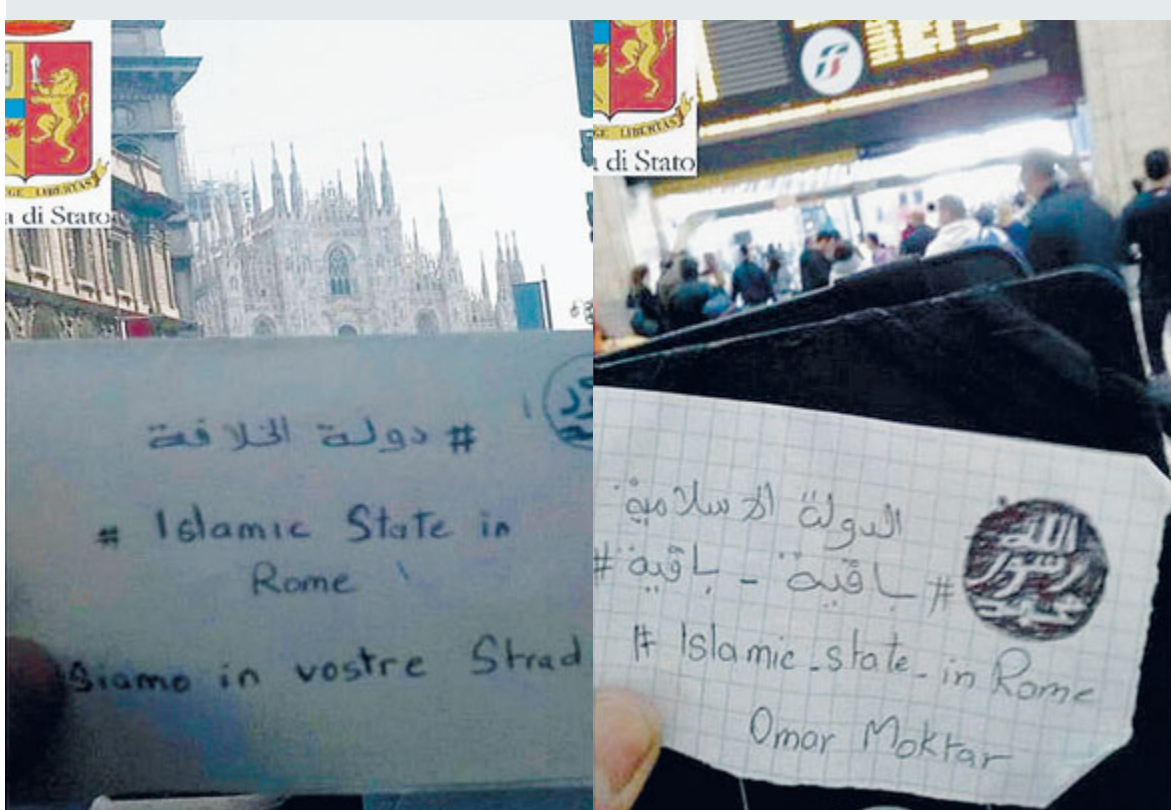 LIBERTAS
a di Stato
# دولة الخلافة
# Islamic State in
Rome
Siamo in vostre Strad
LIBERTAS
a di Stato
الدولة الاسلامية
# باقية - باقية #
# Islamic-state-in Rome
Omar Moktar
الله
رسول
محمد